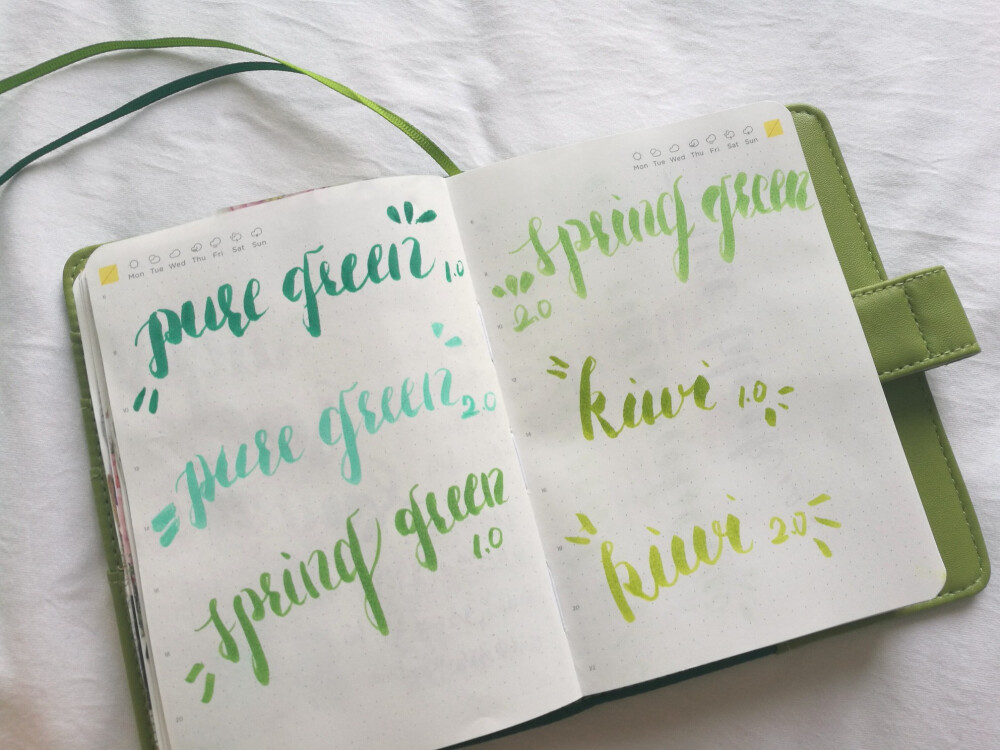 Mon Tue Wed Thu Fri Sat Sun
pure green 1.0
pure green 2.0
spring green
1.0
Mon Tue Wed Thu Fri Sat Sun
spring green
2.0
kiwi 1.0
kiwi 2.0